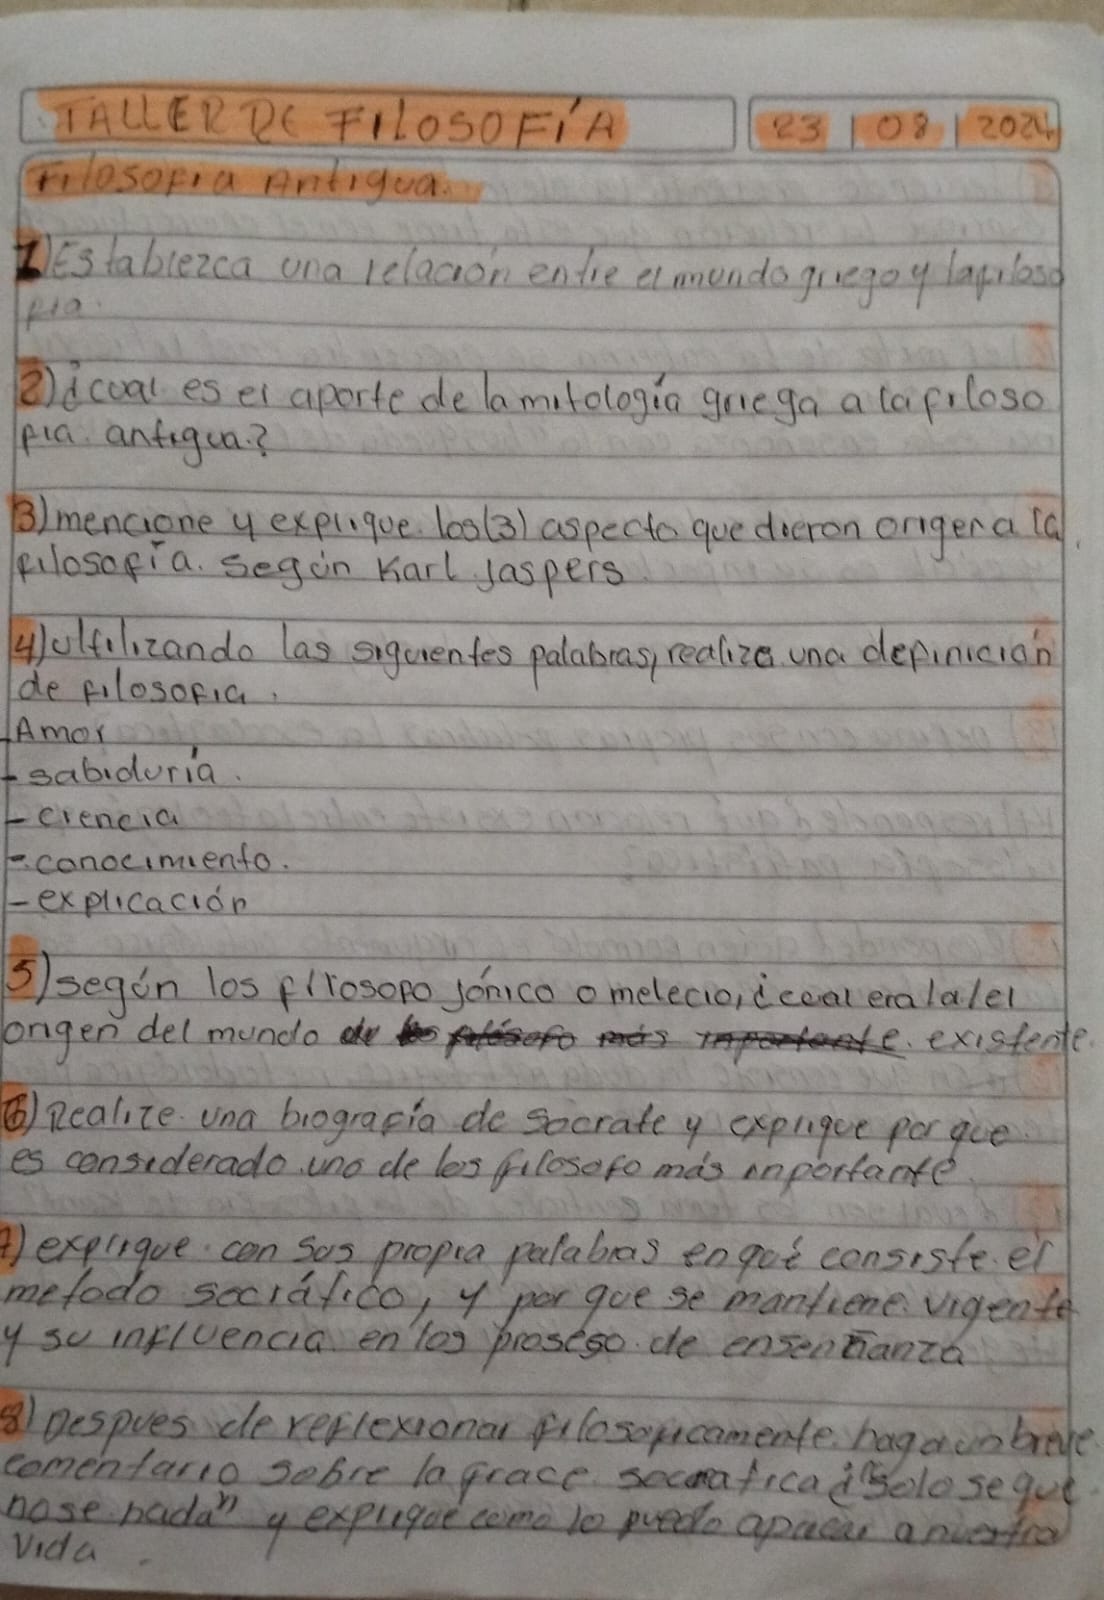 TALLER DE FILOSOFÍA 23 | 08 | 2024
Filosofia Antigua.
1) Establezca una relación entre el mundo griego y la filoso
fia.
2) ¿cual es el aporte de la mitología griega a la filoso
fia antigua?
3) mencione y explique los (3) aspecto que dieron origen a la
filosofía. Según Karl Jaspers
4) ultilizando las siguientes palabras, realize una definición
de filosofia.
- Amor
- sabiduría.
- ciencia
- conocimiento.
- explicación
5) según los filosofo jónico o melecio, ¿cual era
origen del mundo existente.
6) Realize una biografía de Socrate y explique por que
es considerado uno de los filosofo más inportante.
7) explique con sus propia palabras en qué consiste el
metodo socráfico, y por que se mantiene vigente
y su influencia en los proseso de ensenñanza
8) Despues de reflexionar filosoficamente haga un breve
comentario sobre la frace socratica ¡"Solo se que
no se nada" y explique como lo puedo apacar a nuestra
vida.